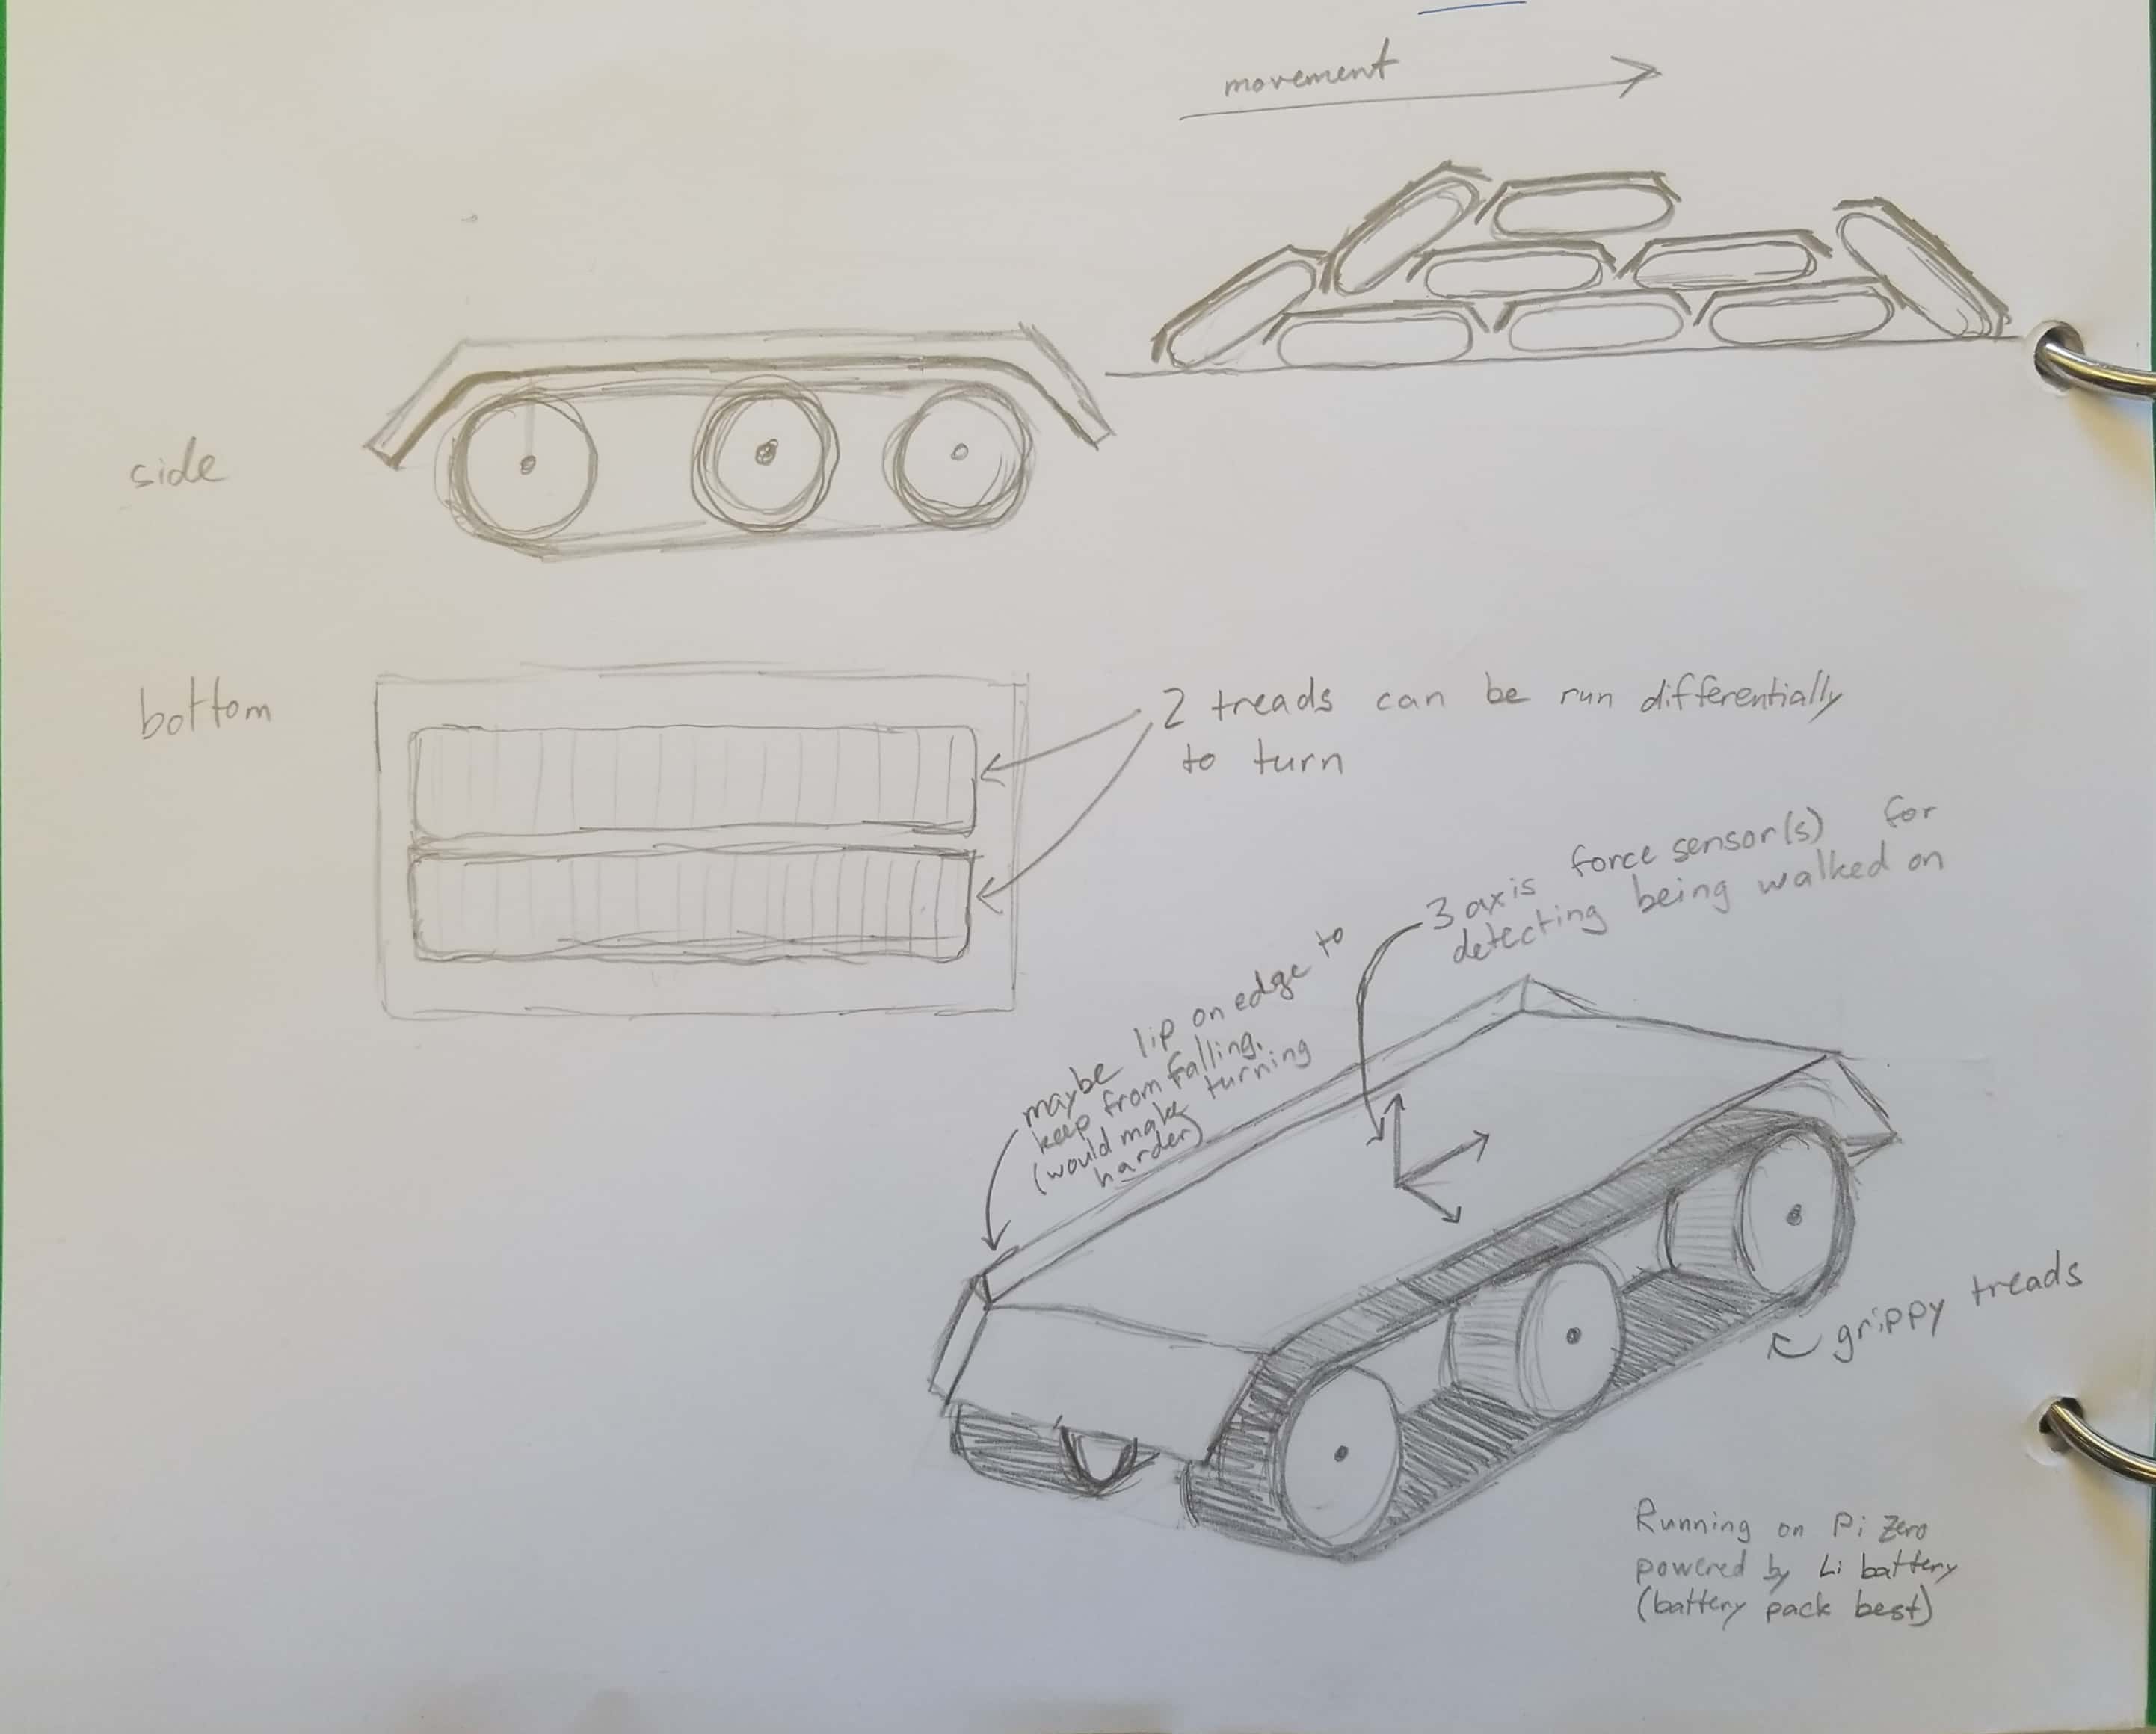 movement
side
bottom
2 treads can be run differentially
to turn
3 axis force sensor(s) for
detecting being walked on
maybe lip on edge to
keep from falling.
(would make turning
harder)
grippy treads
Running on Pi Zero
powered by Li battery
(battery pack best)